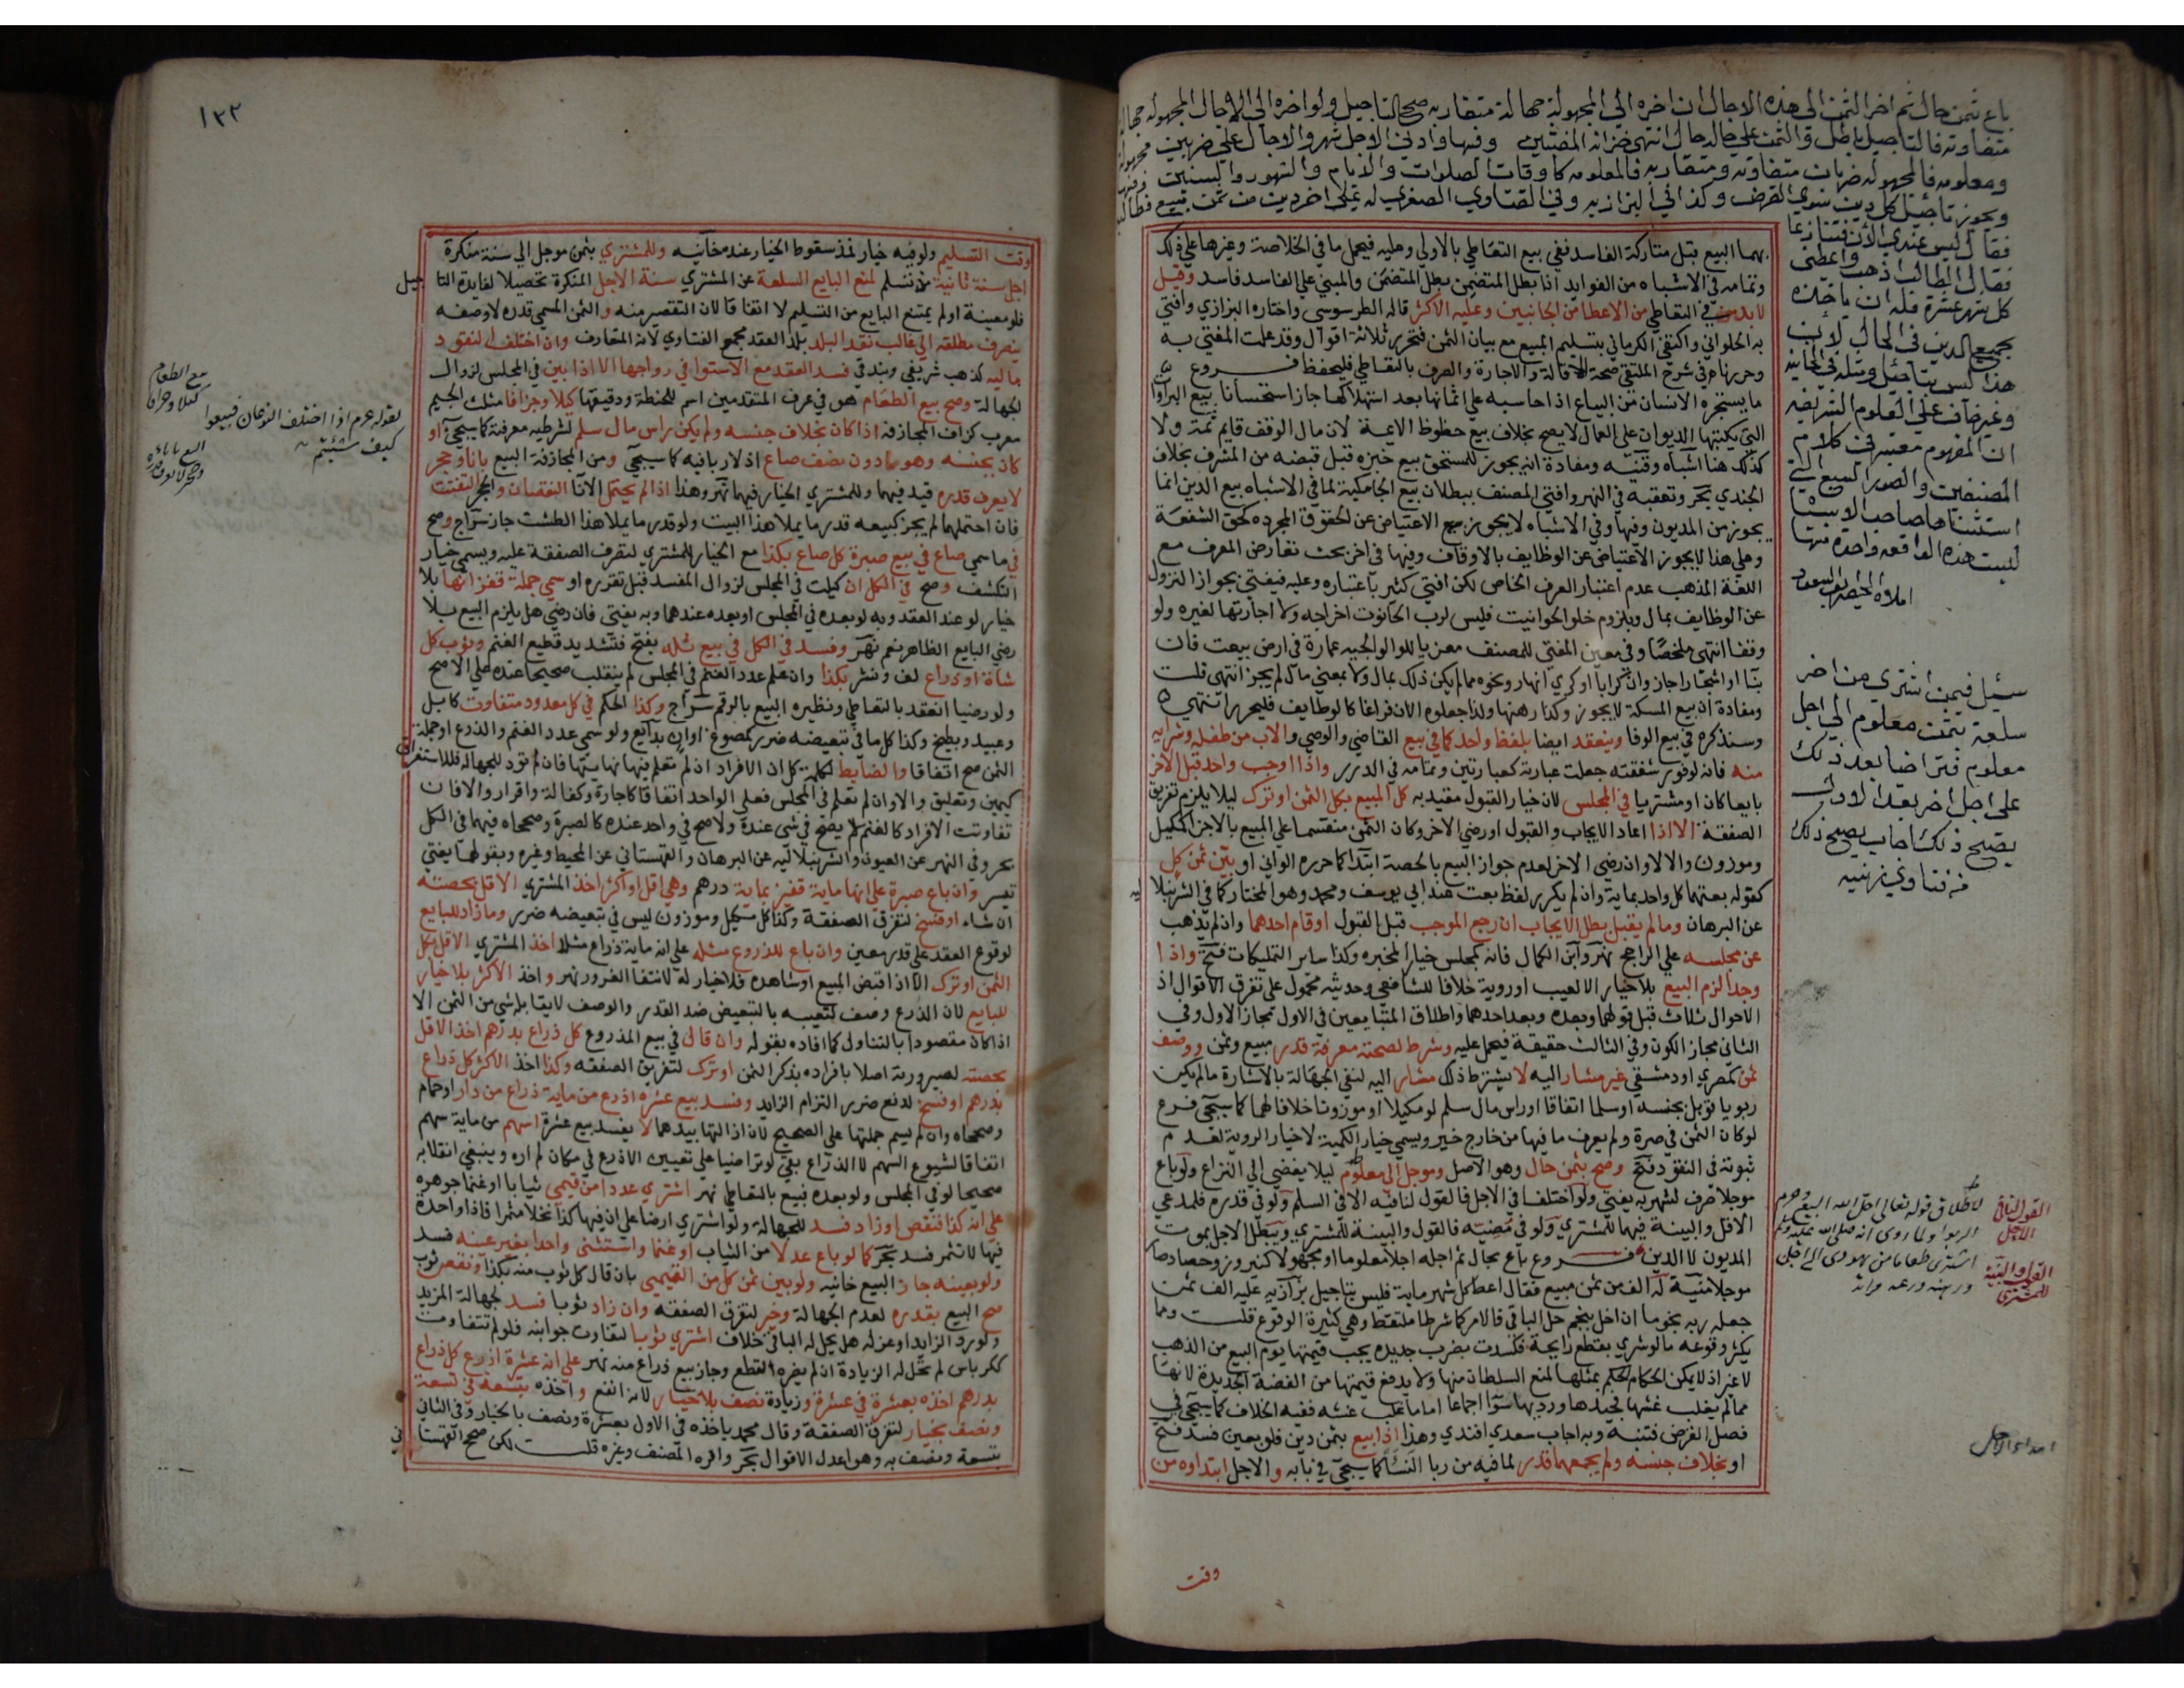 باع بثمن حال ثم اخر الثمن الى هذه الاجال ان اخره الي المجهولة جهالة متقاربه صح التاجيل ولو اخره الي الاجال المجهوله جهالة
متفاوته فالتاجيل باطل والثمن علي حاله حال انتهى خزانة المفتيين وفيها وادني الاجل شهر والاجال علي ضربين مجهولة
ومعلومه فالمجهوله ضربان متفاوته ومتقاربه فالمعلومه كاوقات الصلوات والايام والشهور والسنين
ويجوز تاجيل كل دين سوي القرض وكذا في البزازيه وفي الفتاوي الصغري له علي اخر دين من ثمن مبيع فطالبه
فقال ليس عندي الان فتنازعا
فقال الطالب اذهب واعطني
كل شهر عشرة فله ان ياخذه
بجميع الدين في الحال لان
هذا ليس بتاجيل ومثله في الخانية
وغير خاف علي العلوم الشريفه
ان المفهوم معتبر في كلام
المصنفين والصور السبع التي
استثناها صاحب الاشباه
ليست هذه الواقعه واحدة منها
سئيل فيمن اشتري من اخر
سلعة بثمن معلوم الي اجل
معلوم فتراضيا بعد ذلك
على اجل اخر بعد الاول
يصح ذلك اجاب يصح ذلك
من فتاوي زينيه
القول لنافي الاجل
لاطلاق قوله تعالى احل الله البيع وحرم
الربوا ولما روي انه صلى الله عليه وسلم
اشترى طعاما من يهودى الى اجل
ورهنه درعه
القول والبينة للمشتري
ابتداء الاجل
بهما البيع قبل متاركة الفاسد ففي بيع التعاطي بالاولي وعليه فيحمل ما في الخلاصة وغيرها علي ذلك
وتمامه في الاشباه من الفوايد اذا بطل المتضمن بطل المتضمَن والمبني علي الفاسد فاسد وقيل
لا بد من في التعاطي من الاعطا من الجانبين وعليه الاكثر قاله الطرسوسي واختاره البزازي وافتي
به الحلواني واكتفي الكرماني بتسليم المبيع مع بيان الثمن فتحرر ثلاثة اقوال وقد علمت المفتي به
وحررناه في شرح الملتقي صحة الاقالة والاجارة والصرف بالتعاطي فليحفظ فروع
ما يستجره الانسان من البياع اذا حاسبه علي اثمانها بعد استهلاكها جاز استحسانا بيع البراآت
التي يكتبها الديوان علي العمال لا يصح بخلاف بيع حظوظ الايمة لان مال الوقف قايم ثمة ولا
كذلك هنا اشباه وقنيه ومفاده انه يجوز للمستحق بيع خبزه قبل قبضه من المشرف بخلاف
الجندي بحر وتعقبه في النهر وافتي المصنف ببطلان بيع الجامكية لما في الاشباه بيع الدين انما
يجوز من المديون وفيها وفي الاشباه لا يجوز بيع الاعتياض عن الحقوق المجرده كحق الشفعة
وعلي هذا لا يجوز الاعتياض عن الوظايف بالاوقاف وفيها في اخر بحث تعارض العرف مع
اللغة المذهب عدم اعتبار العرف الخاص لكن افتي كثير باعتباره وعليه فيفتي بجواز النزول
عن الوظايف بمال وبلزوم خلو الحوانيت فليس لرب الحانوت اخراجه ولا اجارتها لغيره ولو
وقفا انتهى ملخصا وفي معين المفتي للمصنف معزيا للولوالجيه عمارة في ارض بيعت فان
بنا او اشجارا جاز وان كرابا او كري انهار ونحوه مما لم يكن ذلك بمال ولا بمعني مال لم يجز انتهى قلت
ومفاده ان بيع المسكة لا يجوز وكذا رهنها ولذا جعلوه الان فراغا كالوظايف فليحرر انتهي
وسنذكره في بيع الوفا وينعقد ايضا بلفظ واحد كما في بيع القاضي والوصي والاب من طفله وشرايه
منه فانه لوفور شفقته جعلت عبارته كعبارتين وتمامه في الدرر واذا اوجب واحد قبل الاخر
بايعا كان او مشتريا في المجلس لان خيار القبول مقيد به كل المبيع بكل الثمن او ترك ليلا يلزم تفريق
الصفقة الا اذا اعاد الايجاب والقبول او رضي الاخر وكان الثمن منقسما علي المبيع بالاجزا كمكيل
وموزون والا لا وان رضي الاخر لعدم جواز البيع بالحصة ابتدا كما حرره الواني او بيّن ثمن كل
كقوله بعتهما كل واحد بماية وان لم يكرر لفظ بعت عند ابي يوسف ومحمد وهو المختار كما في الشرنبلاليه
عن البرهان وما لم يقبل بطل الايجاب ان رجع الموجب قبل القبول او قام احدهما وان لم يذهب
عن مجلسه علي الراجح نهر وابن الكمال فانه كمجلس خيار المخيره وكذا ساير التمليكات فتح واذا
وجدا لزم البيع بلا خيار الا لعيب او روية خلافا للشافعي وحديثه محمول علي تفرق الاقوال اذ
الاحوال ثلاث قبل قولهما وبعده وبعد احدهما واطلاق المتبايعين في الاول مجاز الاول وفي
الثاني مجاز الكون وفي الثالث حقيقة فيحمل عليه وشرط لصحته معرفة قدر مبيع وثمن ووصف
ثمن كمصري او دمشقي غير مشار اليه لا يشترط ذلك مشار اليه لنفي الجهالة بالاشارة مالم يكن
ربويا قوبل بجنسه او سلما اتفاقا او راس مال سلم لو مكيلا او موزونا خلافا لهما كما سيجي فرع
لو كان الثمن في صرة ولم يعرف ما فيها من خارج خير ويسمي خيار الكمية لا خيار الروية لعدم
ثبوته في النقود فتح وصح بثمن حال وهو الاصل وموجل الي معلوم ليلا يفضي الي النزاع ولو باع
موجلا صرف لشهر به يفتي ولو اختلفا في الاجل فالقول لنافيه الا في السلم ولو في قدره فلمدعي
الاقل والبينة فيهما للمشتري ولو في مضيه فالقول والبينة للمشتري ويبطل الاجل بموت
المديون لا الداين فروع باع بحال ثم اجله اجلا معلوما او مجهولا كنيروز وحصاد صار
موجلا منية له الف من ثمن مبيع فقال اعط كل شهر ماية فليس بتاجيل بزازيه عليه الف ثمن
جعله ربه نجوما ان اخل بنجم حل الباقي فالامر كما شرطا ملتقط وهي كثيرة الوقوع قلت ومما
يكثر وقوعه ما لو شري بقطع رايجة فكسدت بضرب جديده يجب قيمتها يوم البيع من الذهب
لا غير اذ لا يمكن الحكام الحكم بمثلها لمنع السلطان منها ولا يدفع قيمتها من الفضة الجديدة لانها
مما لم يغلب غشها فجيدها ورديها سوا اجماعا اما ما غلب غشه ففيه الخلاف كما سيجي في
فصل القرض فتنبه وبه اجاب سعدي افندي وهذا اذا بيع بثمن دين فلو بعين فسد فتح
او بخلاف جنسه ولم يجمعهما قدر لما فيه من ربا النسأ كما سيجي في بابه والاجل ابتداوه من
وقت
١٣٢
وقت التسليم ولو فيه خيار فمذ سقوط الخيار عنده خانيه وللمشتري بثمن موجل الي سنة منكرة
اجل سنة ثانية مذ تسلم لمنع البايع السلعة عن المشتري سنة الاجل المنكرة تحصيلا لفايدة التاجيل
فلو معينة او لم يمتنع البايع من التسليم لا اتفاقا لان التقصير منه والثمن المسمي قدره لا وصفه
ينصرف مطلقه الي غالب نقد البلد بلد العقد مجمع الفتاوي لانه المتعارف وان اختلف النقود
ماليه كذهب شريفي وبندقي فسد العقد مع الاستوا في رواجها الا اذا بين في المجلس لزوال
الجهالة وصح بيع الطعام هو في عرف المتقدمين اسم للحنطة ودقيقها كيلا وجزافا مثلث الجيم
معرب كزاف المجازفه اذا كان بخلاف جنسه ولم يكن راس مال سلم لشرطيه معرفته كما سيجي او
كان بجنسه وهو دون نصف صاع اذ لا ربا فيه كما سيجي ومن المجازفة البيع باناء وحجر
لا يعرف قدره قيد فيهما وللمشتري الخيار فيهما نهر وهذا اذا لم يحتمل الانا النقصان والحجر التفتت
فان احتملهما لم يجز كبيعه قدر ما يملا هذا البيت ولو قدر ما يملا هذا الطشت جاز سراج وصح
في ما سمي صاع في بيع صبرة كل صاع بكذا مع الخيار للمشتري لتفرق الصفقة عليه ويسمي خيار
التكشف وصح في الكل ان كيلت في المجلس لزوال المفسد قبل تقرره او سمي جملة قفزانها بلا
خيار لو عند العقد وبه لو بعده في المجلس او بعده عندهما وبه يفتي فان رضي هل يلزم البيع بلا
رضي البايع الظاهر نعم نهر وفسد في الكل في بيع ثله بفتح فتشديد قطيع الغنم وثوب كل
شاة او ذراع لف ونشر بكذا وان علم عدد الغنم في المجلس لم ينقلب صحيحا عنده علي الاصح
ولو رضيا انعقد بالتعاطي ونظيره البيع بالرقم سراج وكذا الحكم في كل معدود متفاوت كابل
وعبيد وبطيخ وكذا كل ما في تبعيضه ضرر كمصوغ اوان بدايع ولو سمي عدد الغنم والذرع او جملة
الثمن صح اتفاقا والضابط لكلمة كل ان الافراد ان لم تعلم نهايتها فان لم تود للجهالة فللاستغراق
كيمين وتعليق والا وان لم تعلم في المجلس فعلي الواحد اتفاقا كاجارة وكفالة واقرار والا فان
تفاوتت الافراد كالغنم لم يصح في شي عنده والا صح في واحد عنده كالصبرة وصححاه فيهما في الكل
بحر وفي النهر عن العيون والشرنبلاليه عن البرهان والقهستاني عن المحيط وغيره وبقولهما يفتي
تيسر وان باع صبرة علي انها ماية قفيز بماية درهم وهي اقل او اكثر اخذ المشتري الاقل بحصته
ان شاء او فسخ لتفرق الصفقة وكذا كل مكيل وموزون ليس في تبعيضه ضرر وما زاد للبايع
لوقوع العقد علي قدر معين وان باع المذروع مثله علي انه ماية ذراع مثلا اخذ المشتري الاقل بكل
الثمن او ترك الا اذا قبض المبيع او شاهده فلا خيار له لانتفا الغرور نهر واخذ الاكثر بلا خيار
للبايع لان الذرع وصف لتعيبه بالتبعيض ضد القدر والوصف لا يقابله شي من الثمن الا
اذا كان مقصودا بالتناول كما افاده بقوله وان قال في بيع المذروع كل ذراع بدرهم اخذ الاقل
بحصته لصيرورته اصلا بافراده بذكر الثمن او ترك لتفريق الصفقه وكذا اخذ الاكثر كل ذراع
بدرهم او فسخ لدفع ضرر التزام الزايد وفسد بيع عشرة اذرع من ماية ذراع من دار او حمام
وصححاه وان لم يسم جملتها علي الصحيح لان ازالتها بيدهما لا يفسد بيع عشرة اسهم من ماية سهم
اتفاقا لشيوع السهم لا الذراع بقي لو تراضيا علي تعيين الاذرع في مكان لم اره وينبغي انقلابه
صحيحا لو في المجلس ولو بعده فبيع بالتعاطي نهر اشتري عددا من قيمي ثيابا او غنما جوهره
علي انه كذا فنقص او زاد فسد للجهالة ولو اشتري ارضا علي ان فيها كذا نخلا مثمرا فاذا واحدة
فيها لا تثمر فسد بحر كما لو باع عدلا من الثياب او غنما واستثني واحدا بغير عينه فسد
ولو بعينه جاز البيع خانيه ولو بين ثمن كل من القيمي بان قال كل ثوب منه بكذا ونقص ثوب
صح البيع بقدره لعدم الجهالة وخير لتفرق الصفقه وان زاد ثوبا فسد لجهالة المزيد
ولو رد الزايد او عزله هل يحل له الباقي خلاف اشتري ثوبا تتفاوت جوانبه فلو لم تتفاوت
ككرباس لم تحل له الزيادة ان لم يضره القطع وجاز بيع ذراع منه نهر علي انه عشرة اذرع كل ذراع
بدرهم اخذه بعشرة في عشرة وزيادة نصف بلا خيار لانه انفع واخذه بتسعه في تسعة
ونصف بخيار لتفرق الصفقة وقال محمد ياخذه في الاول بعشرة ونصف بالخيار وفي الثاني
بتسعة ونصف به وهو اعدل الاقوال بحر واقره المصنف وغيره قلت لكن صحح القهستاني
بيع الطعام كيلا وجزافا
لقوله عم اذا اختلف النوعان فبيعوا
كيف شئتم